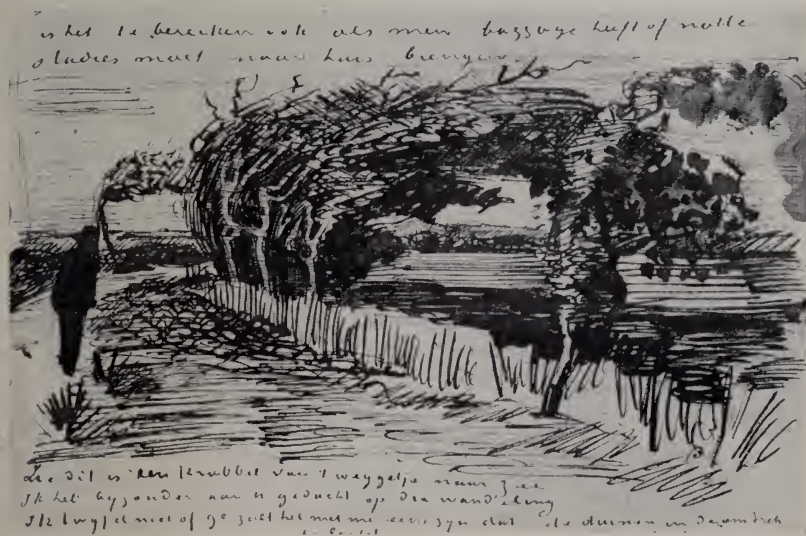 is het te bereiken ook als men baggage heeft of natte
studies moet naar huis brengen.
Zie dit is een krabbel van 't weggetje naar zee
Ik heb byzonder aan u gedacht op die wandeling
Ik twyfel niet of ge zult het met me eens zyn dat de duinen in